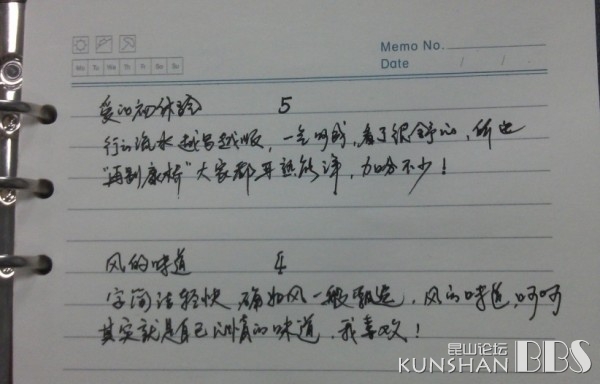 Memo No.
Date / /
Mo Tu We Th Fr Sa Su
爱的初体验 5
行云流水越写越顺，一气呵成，看了很舒心，所选
“再别康桥”大家都耳熟能详，加分不少！
风的味道 4
字简洁轻快，确如风一般飘逸，风的味道，呵呵
其实就是自己心情的味道，我喜欢！
昆山论坛
KUNSHAN BBS